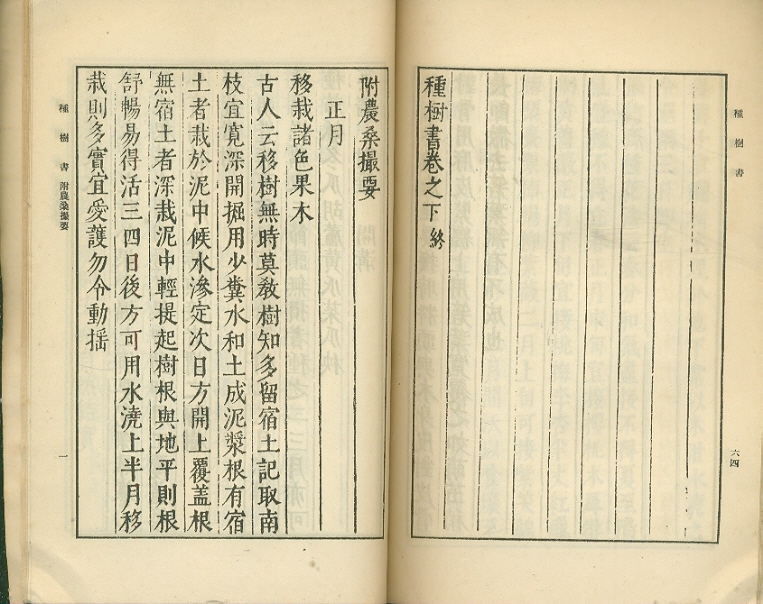 種樹書
六四
種樹書卷之下終
附農桑撮要
正月
移栽諸色果木
古人云移樹無時莫敎樹知多留宿土記取南
枝宜寬深開掘用少糞水和土成泥漿根有宿
土者栽於泥中候水滲定次日方開上覆盖根
無宿土者深栽泥中輕提起樹根與地平則根
舒暢易得活三四日後方可用水澆上半月移
栽則多實宜愛護勿令動揺
種樹書 附農桑撮要
一